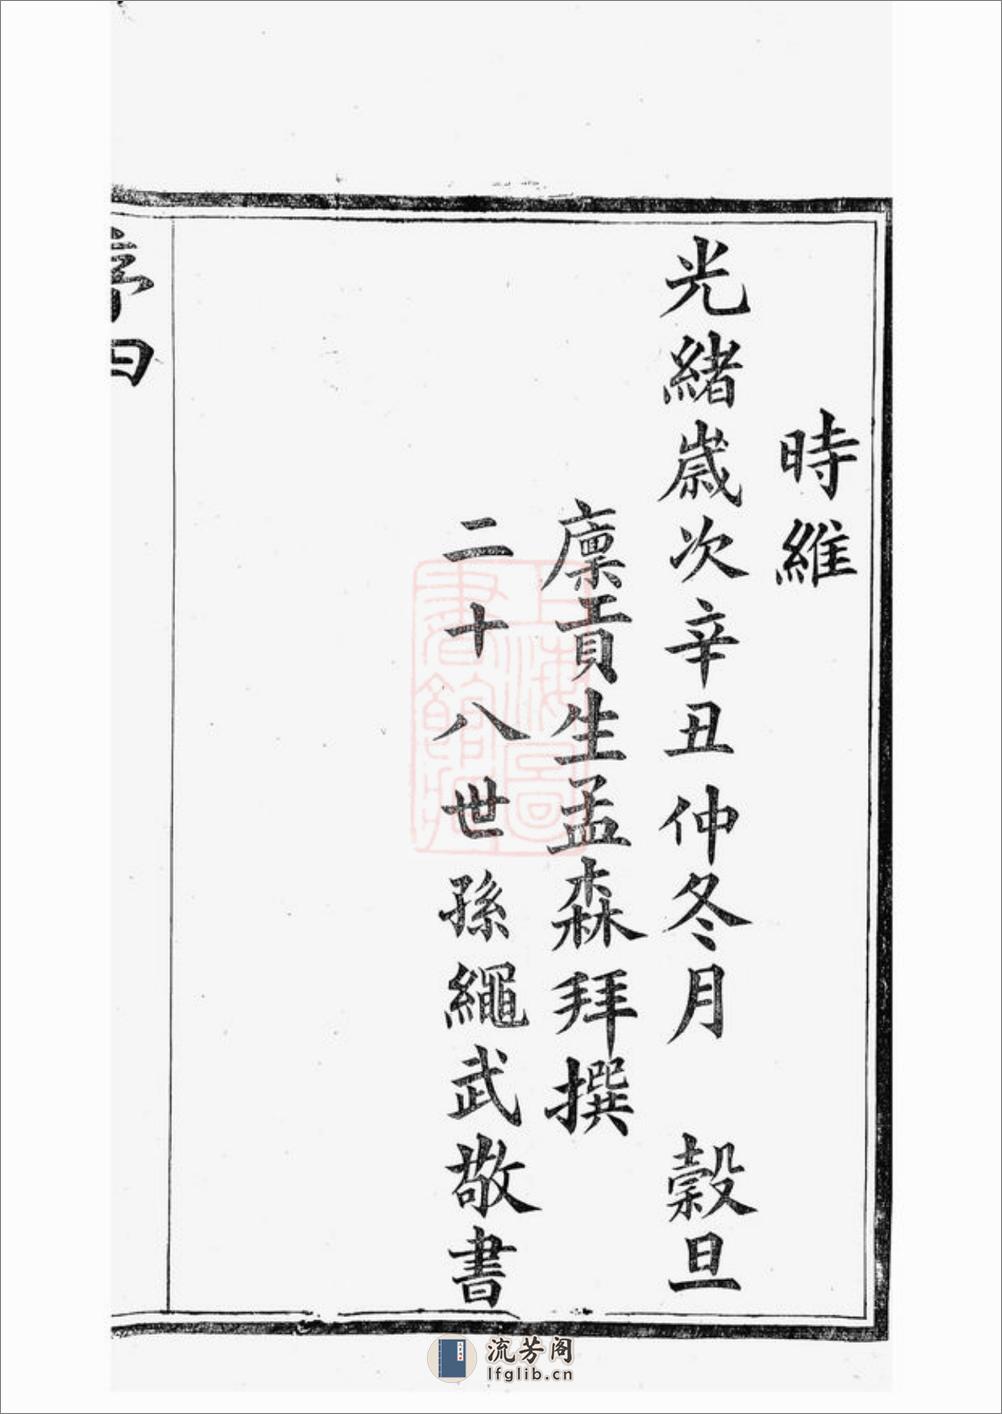 時維
光緒歲次辛丑仲冬月　穀旦
廩貢生孟森拜撰
二十八世孫繩武敬書
序四
上海圖書館藏
流芳阁
lfglib.cn